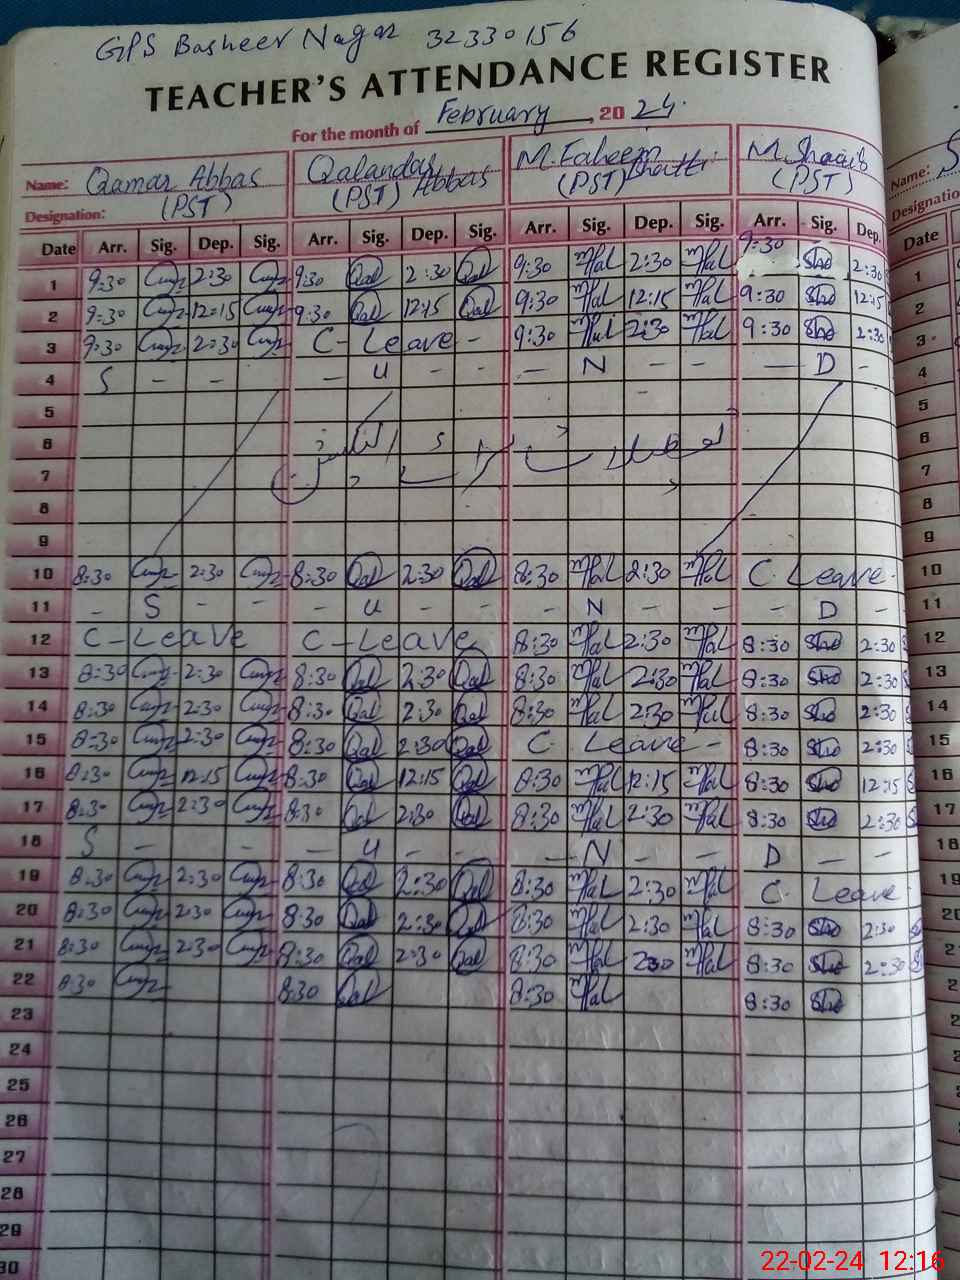 GPS Basheer Nagar 32330156
TEACHER'S ATTENDANCE REGISTER
For the month of February, 2024.
Name: Qamar Abbas Qalandar Abbas M. Faheem Bhatti M. Shoaib
Designation: (PST) (PST) (PST) (PST)
Date Arr. Sig. Dep. Sig. Arr. Sig. Dep. Sig. Arr. Sig. Dep. Sig. Arr. Sig. Dep.
1 9:30 2:30 9:30 Qal 2:30 Qal 9:30 2:30 9:30 Sho 2:30
2 9:30 12:15 9:30 Qal 12:15 Qal 9:30 12:15 9:30 Sho 12:15
3 9:30 2:30 C-Leave - 9:30 2:30 9:30 Sho 2:30
4 S - - - U - - - N - - - D -
5
6
7
8
9
10 8:30 2:30 8:30 Qal 2:30 Qal 8:30 2:30 C. Leave.
11 - S - - - U - - - N - - - D -
12 C-Leave C-Leave 8:30 2:30 8:30 Sho 2:30
13 8:30 2:30 8:30 Qal 2:30 Qal 8:30 2:30 8:30 Sho 2:30
14 8:30 2:30 8:30 Qal 2:30 Qal 8:30 2:30 8:30 Sho 2:30
15 8:30 2:30 8:30 Qal 2:30 Qal C. Leave - 8:30 Sho 2:30
16 8:30 12:15 8:30 Qal 12:15 Qal 8:30 12:15 8:30 Sho 12:15
17 8:30 2:30 8:30 Qal 2:30 Qal 8:30 2:30 8:30 Sho 2:30
18 S - - - U - - - N - - D - -
19 8:30 2:30 8:30 Qal 2:30 Qal 8:30 2:30 C. Leave
20 8:30 2:30 8:30 Qal 2:30 Qal 8:30 2:30 8:30 Sho 2:30
21 8:30 2:30 8:30 Qal 2:30 Qal 8:30 230 8:30 Sho 2:30
22 8:30 8:30 Qal 8:30 8:30 Sho
23
24
25
26
27
28
29
30
Name:
Designation
Date
1
2
3
4
5
6
7
8
9
10
11
12
13
14
15
16
17
18
19
20
22-02-24 12:16